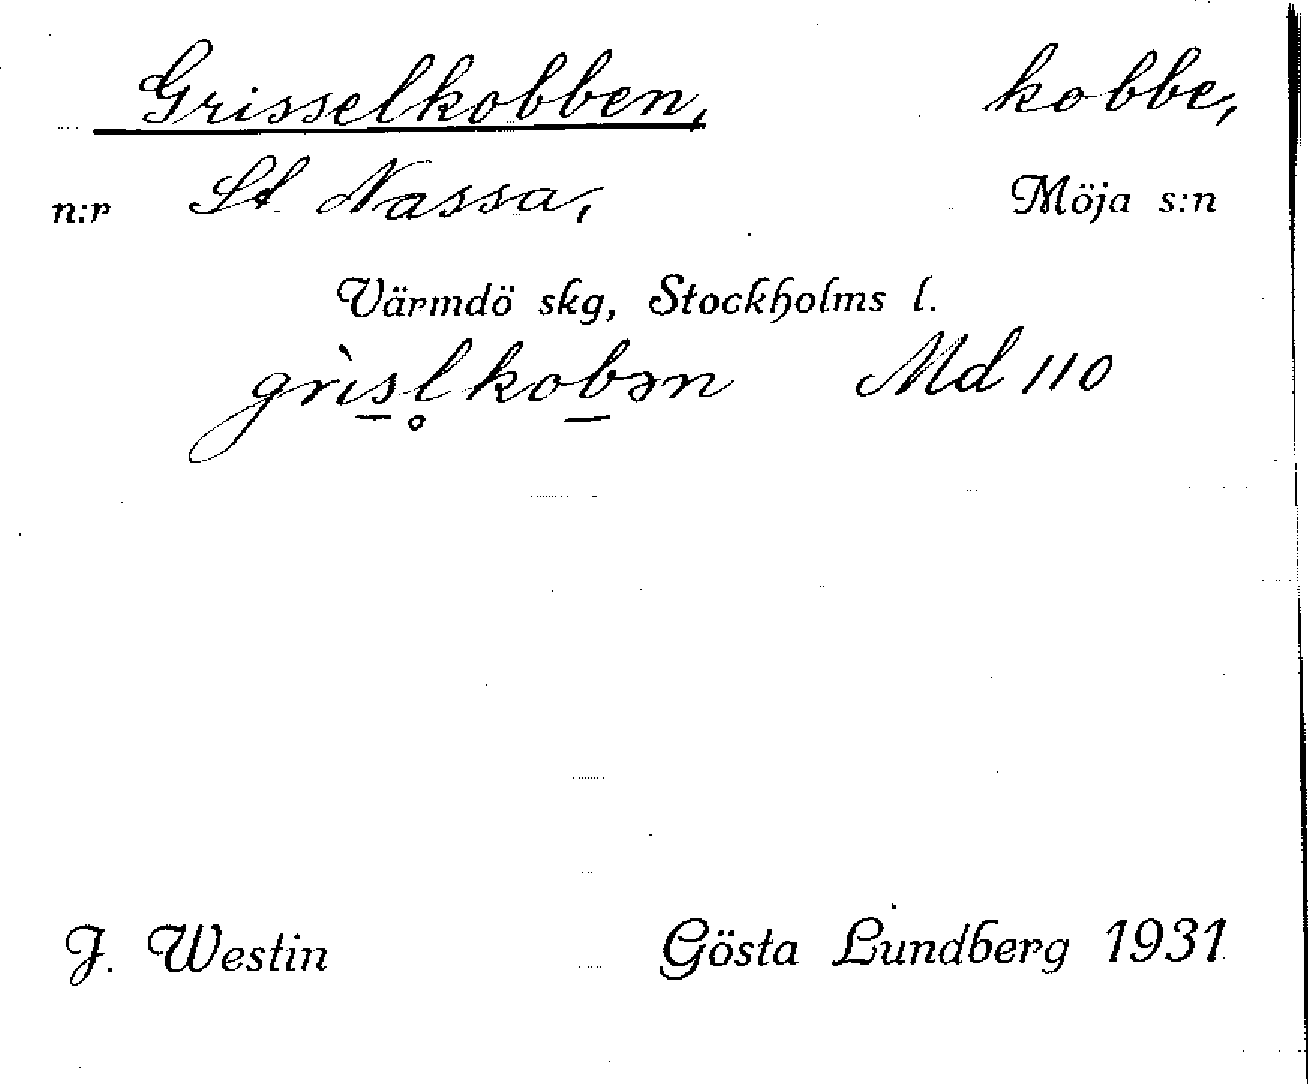 Grisselkobben, kobbe,
n:r St. Nassa, Möja s:n
Värmdö skg, Stockholms l.
grìs̲l̥kob̲ən Md 110
J. Westin Gösta Lundberg 1931